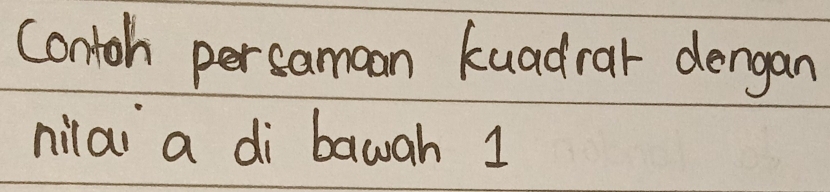 Contoh persamaan kuadrat dengan
nilai a di bawah 1